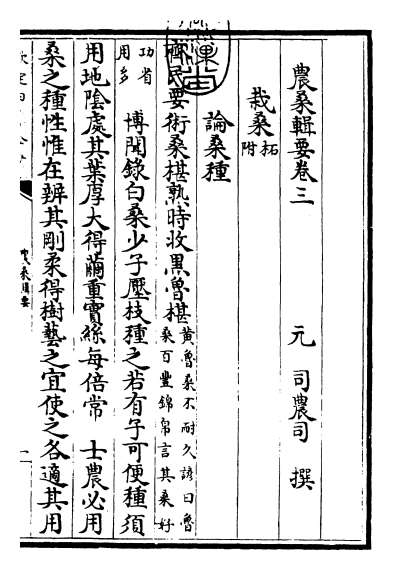 農桑輯要卷三
元 司農司 撰
栽桑 柘附
論桑種
齊民要術桑椹熟時收黑魯椹 黄魯桑不耐久諺曰魯
桑百豐錦帛言其桑好
功省
用多
博聞錄白桑少子壓枝種之若有子可便種須
用地陰處其葉厚大得繭重實絲每倍常 士農必用
桑之種性惟在辨其剛柔得樹藝之宜使之各適其用
農桑輯要
一